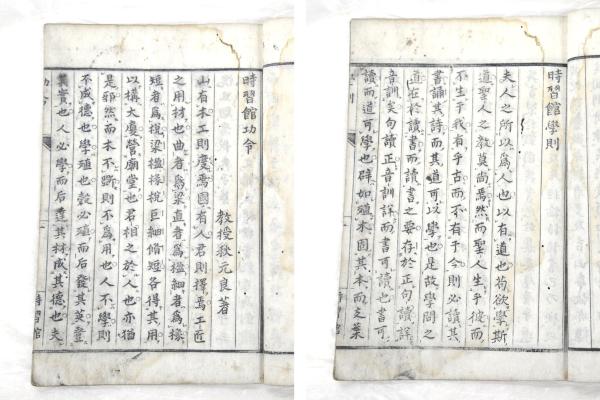 時習館功令
教授秋元良著
山有木工則度焉國有人君則擇焉工匠
之用材也曲者爲梁直者爲楹細者爲椽
短者爲梲梁楹椽梲巨細脩短各得其用
以構大廈營廟堂也君相之於人也亦猶
是邪然而木不斲則不爲用也人不學則
不成德也學殖也穀必殖而后登其英登
其實也人必學而后達其材成其德也夫
時習館
時習館學則
夫人之所以爲人也以有道也苟欲學斯
道聖人之教莫尚焉然而聖人生乎彼而
不生乎我有乎古而不有乎今則必讀其
書誦其詩而其道可以學也是故學問之
道在於讀書而讀書之要存於正句讀詳
音訓矣句讀正音訓詳而書可讀也書可
讀而道可學也辟如殖木固其本而之葉